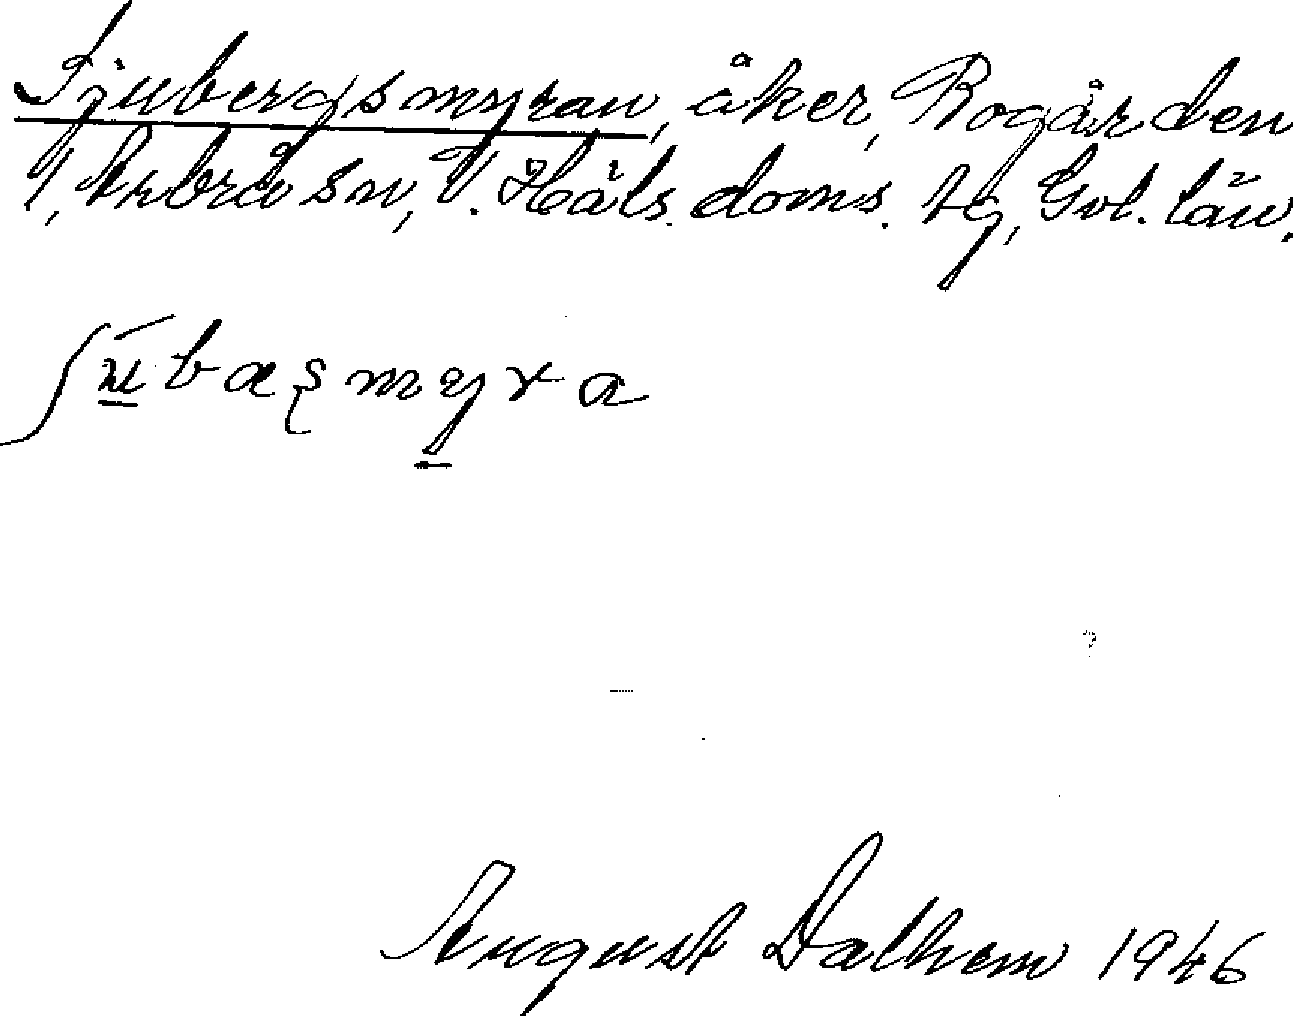 Sjubergsmyran, åker, Rogården
1, Arbrå sn, V. Häls. doms. tg, Gvl. län.
ʃu̲bæʂmy̲ra
August Dalhem 1946